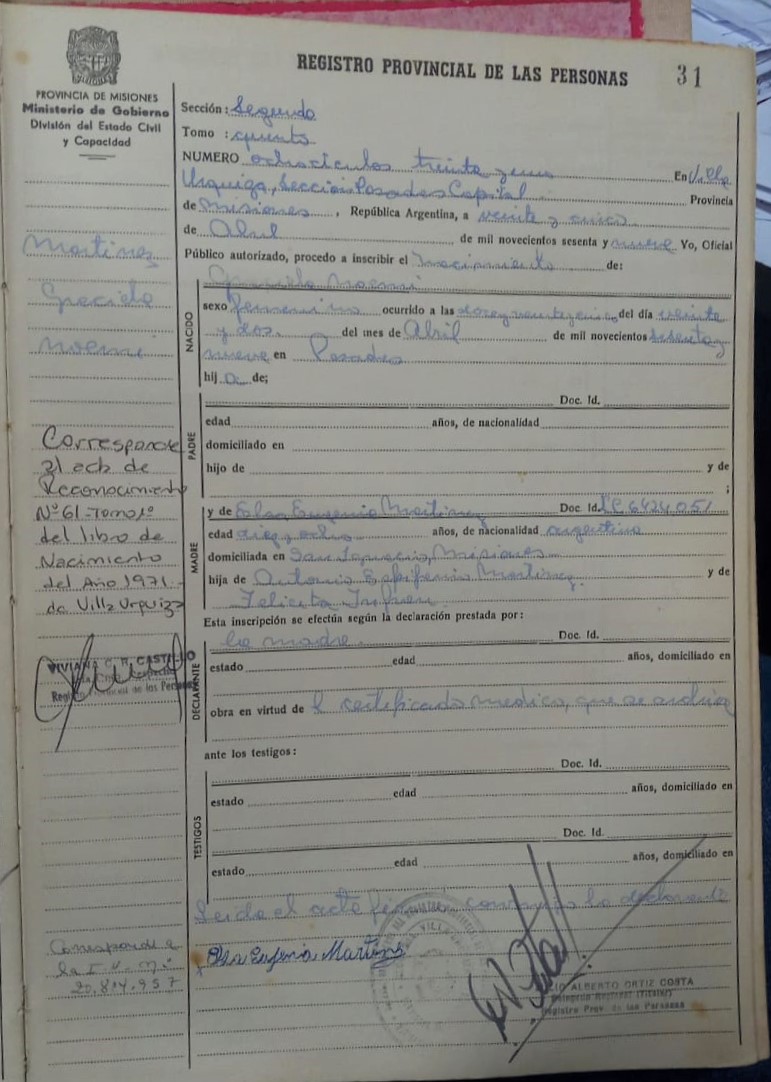 REGISTRO PROVINCIAL DE LAS PERSONAS
31
PROVINCIA DE MISIONES
Ministerio de Gobierno
División del Estado Civil
y Capacidad
Martinez
Graciela
Noemi
Corresponde
al acta de
Reconocimiento
Nº 61 - Tomo 1º
del libro de
Nacimiento
del Año 1971 -
de Villa Urquiza
VIVIANA C. R. CASTILLO
Registro Provincial de las Personas
Corresponde a
la
20.814.957
Sección: Segundo
Tomo : quinto
NUMERO ochocientos treinta y uno En Villa
Urquiza, Sección Posadas Capital Provincia
de Misiones, República Argentina, a veinte y cinco
de Abril de mil novecientos sesenta y nueve Yo, Oficial
Público autorizado, procedo a inscribir el Nacimiento de:
Graciela Noemi
NACIDO
sexo femenino ocurrido a las doce y veinte y cinco del día veinte
y dos del mes de Abril de mil novecientos sesenta y
nueve en Posadas
hija de;
PADRE
Doc. Id.
edad años, de nacionalidad
domiciliado en
hijo de y de
;
MADRE
y de Elsa Eugenia Martinez Doc. Id. LC 6424051
edad diez y ocho años, de nacionalidad argentina
domiciliada en San Ignacio, Misiones
hija de Antonio Epifanio Martinez y de
Felicita
Esta inscripción se efectúa según la declaración prestada por:
DECLARANTE
la madre Doc. Id.
estado edad años, domiciliado en
obra en virtud de l certificado medico, que se archiva
ante los testigos:
TESTIGOS
Doc. Id.
estado edad años, domiciliado en
Doc. Id.
estado edad años, domiciliado en
Leida el acta firma conmigo la declarante
Elsa Eugenia Martinez
ALBERTO ORTIZ COSTA
Delegado Regional (Titular)
Registro Prov. de las Personas